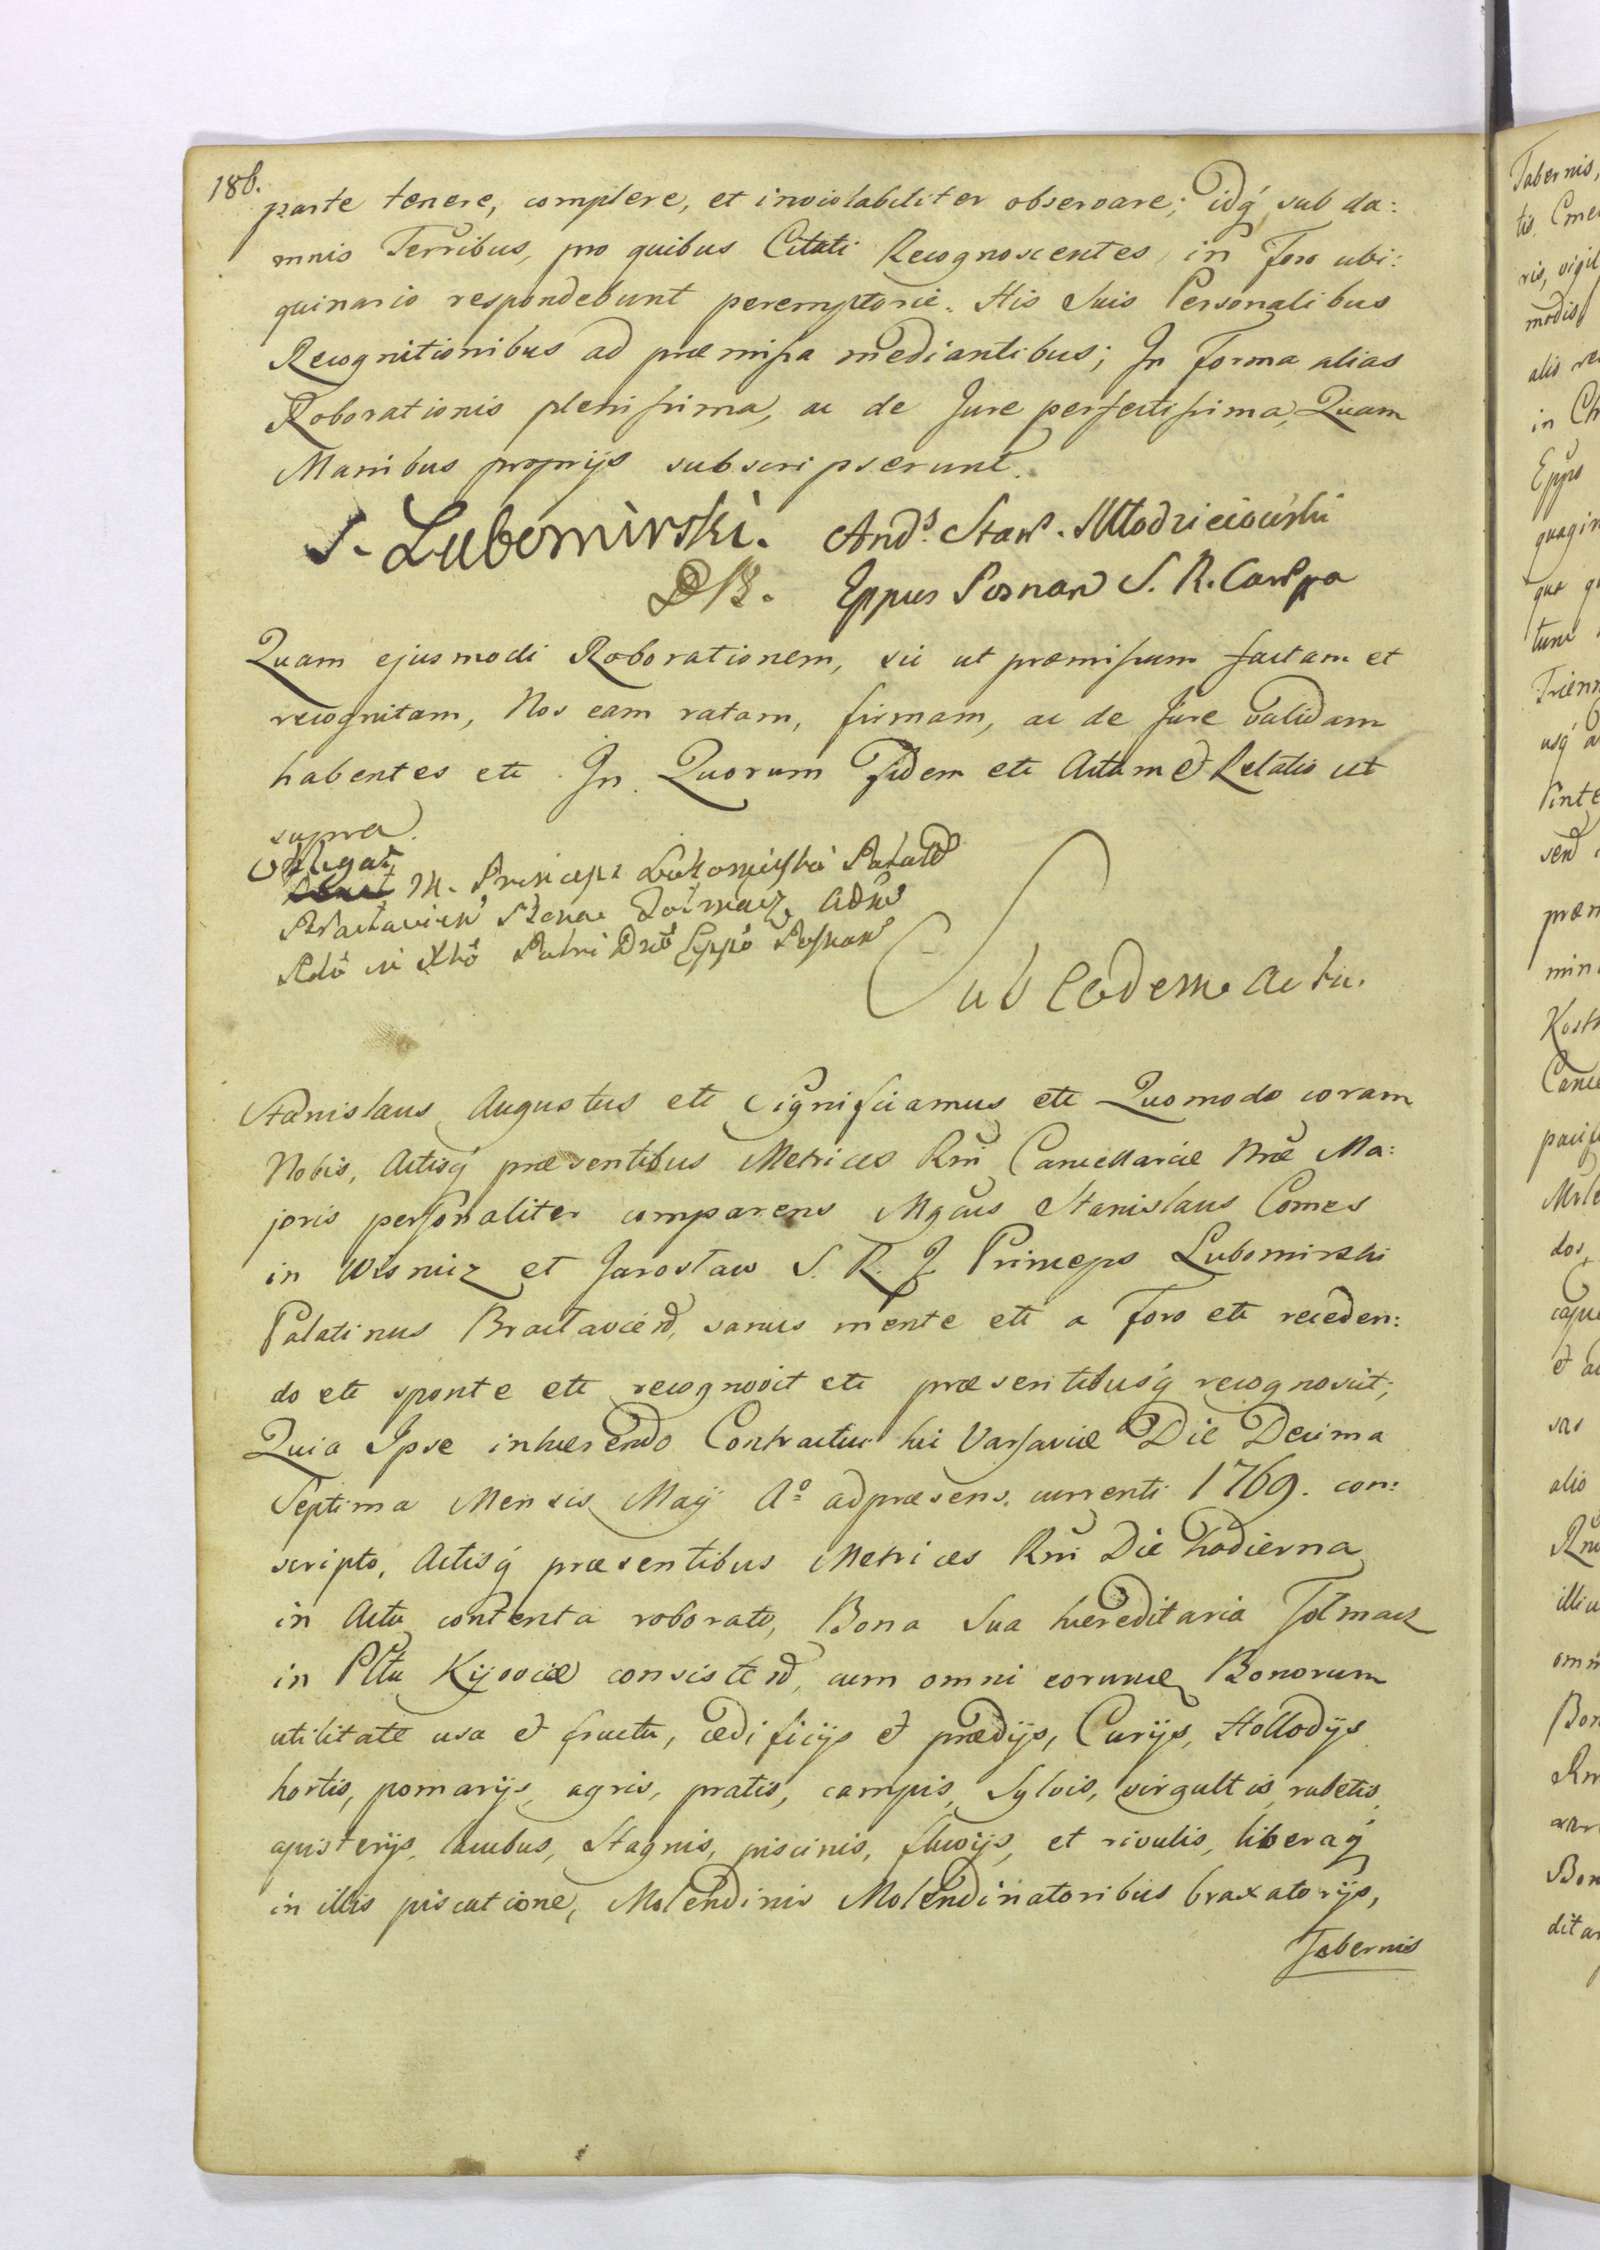 186.
parte tenere, complere, et inviolabiliter observare; idq́ sub da:
mnis Terribus, pro quibus Citati Recognoscentes in Foro ubi:
quinario respondebunt peremptorie. His Suis Personalibus
Recognitionibus ad præmissa mediantibus; In Forma alias
Roborationis plenissima, ac de Jure perfectissima, Quam
Manibus proprijs subscripserunt.
S. Lubomirski. And.s Stan. Młodzieiowski
Eppus Posnan S. R. Can
Quam ejusmodi Roborationem, sic ut præmissum factam et
recognitam, Nos eam ratam, firmam, ac de Jure validam
habentes etc. In Quorum Fidem etc Actum et Relatio ut
supra.
Obligat
M. Princeps Lubomirski Palat
Bractavien Bona Tołmacz Adm
Rdo in Xto Patri Dno Eppo Posnan
Sub eodem Actu.
Stanislaus Augustus etc Significamus etc Quomodo coram
Nobis, Actisq́ præsentibus Metrices Rni Cancellariæ Nræ Ma:
joris personaliter comparens Mgcus Stanislaus Comes
in Wisnicz et Jarosław S. R. I. Princeps Lubomirski
Palatinus Bractavien, sanus mente etc a Foro etc receden:
do etc sponte etc recognovit etc præsentibusq́ recognoscit;
Quia Ipse inhærendo Contractui hic Varsaviæ Die Decima
Septima Mensis Maij Aº adpræsens currenti 1769. con:
scripto, Actisq́ præsentibus Metrices Rni Die hodierna
in Actu contenta roborato, Bona Sua hæreditaria Tołmacz
in Pltu Kijoviæ consisten, cum omni eorum Bonorum
utilitate usu et fructu, ædificijs et prædijs, Curijs, Hollodijs
hortis, pomarijs, agris, pratis, campis, Sylvis, virgultis, rubetis,
apisterijs, lacubus, Stagnis, piscinis, fluvijs, et rivulis, liberaq́
in illis piscatione, Molendinis Molendinatoribus braxatorijs,
Tabernis